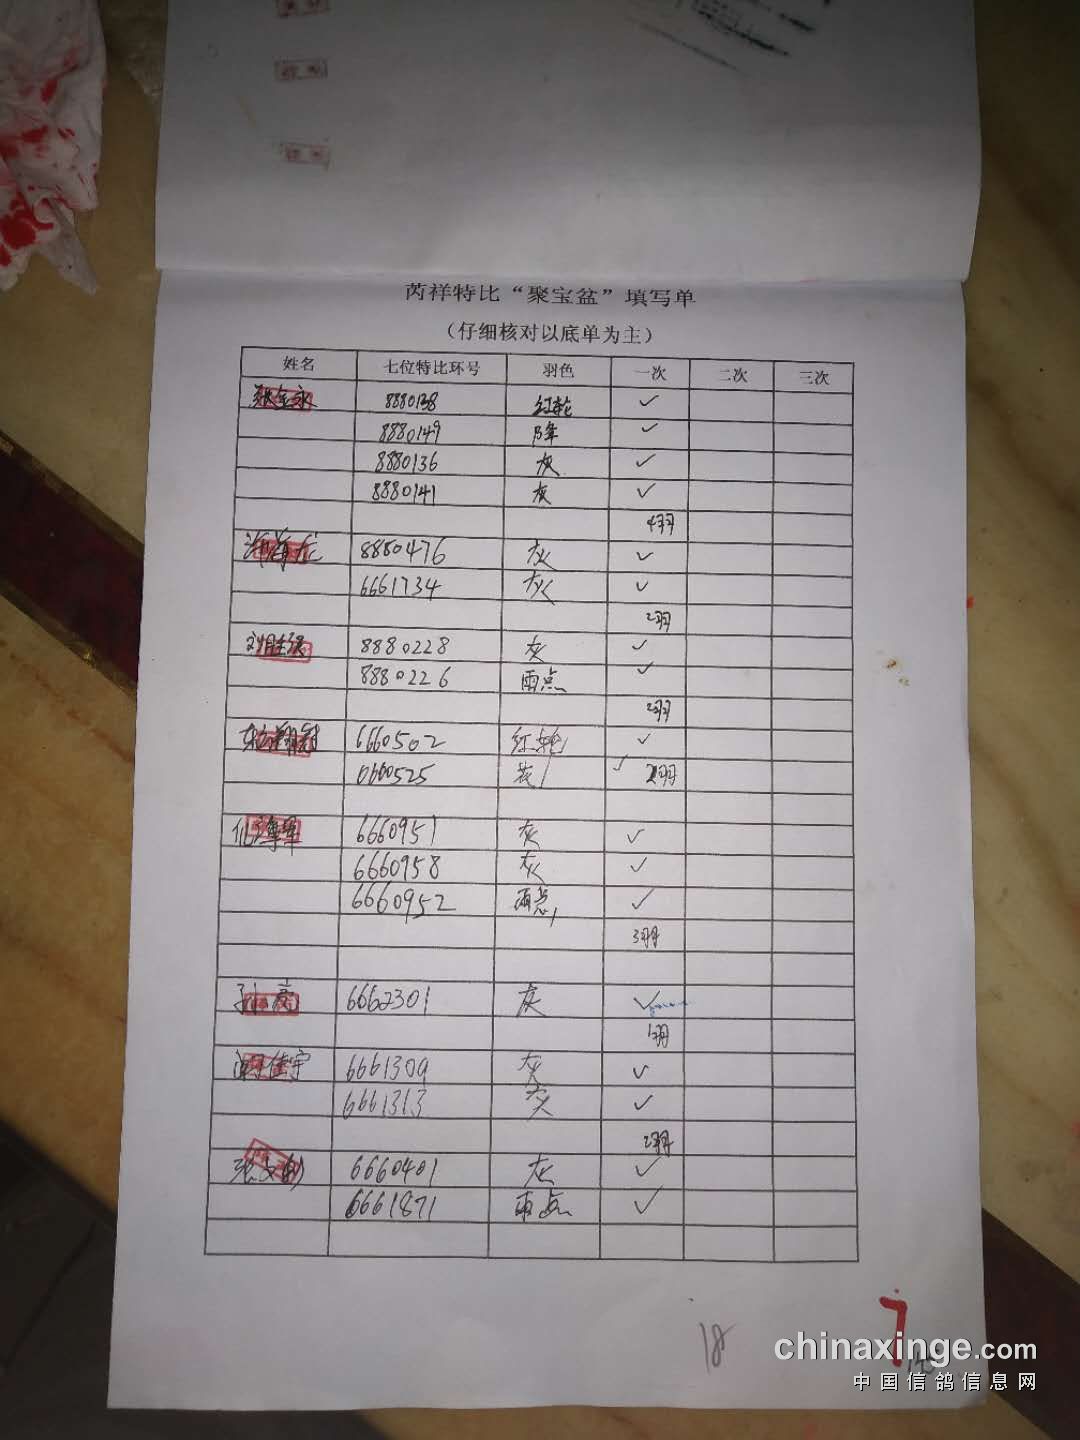 芮祥特比“聚宝盆”填写单
（仔细核对以底单为主）
姓名 七位特比环号 羽色 一次 二次 三次
8880138 红轮 ✓
8880149 降 ✓
8880136 灰 ✓
8880141 灰 ✓
4羽
8880476 灰 ✓
6661734 灰 ✓
2羽
8880228 灰 ✓
8880226 雨点 ✓
2羽
6660502 红轮 ✓
0660525 花 ✓ 2羽
6660951 灰 ✓
6660958 灰 ✓
6660952 雨点 ✓
3羽
孙亮 6662301 灰 ✓
1羽
6661309 灰 ✓
6661313 灰 ✓
2羽
6660401 灰 ✓
6661871 雨点 ✓
18
7
chinaxinge.com
中国信鸽信息网